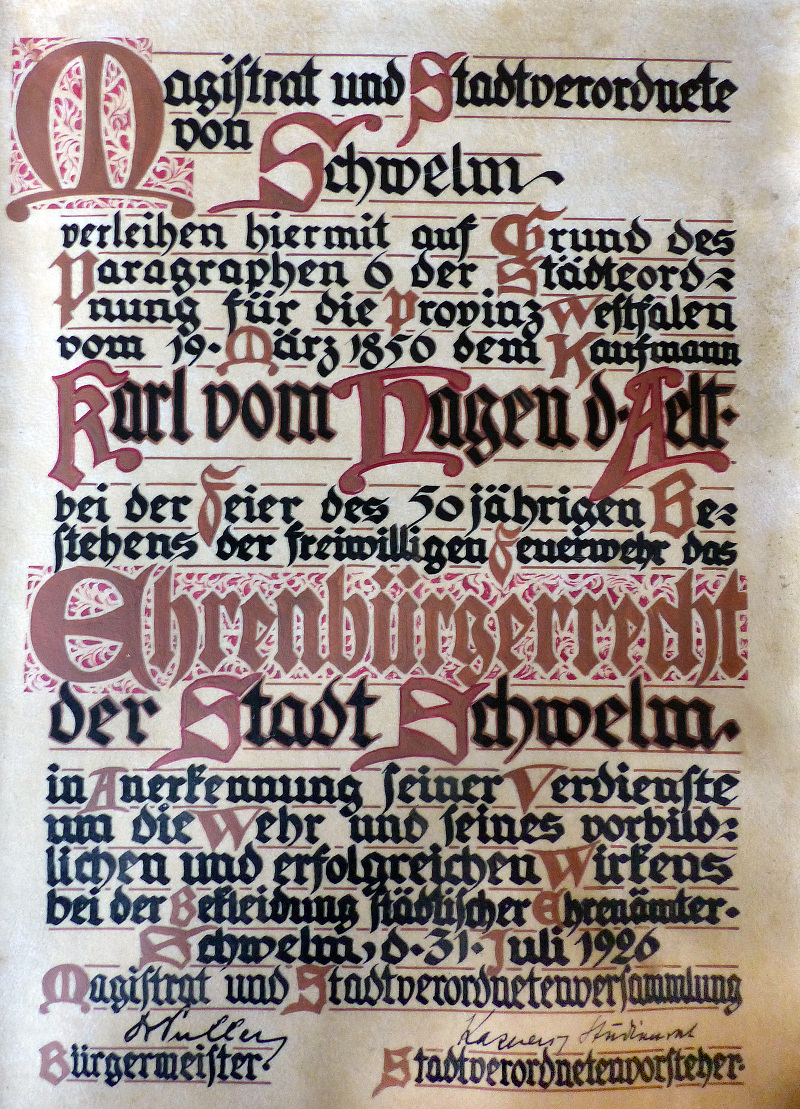 Magistrat und Stadtverordnete
von
Schwelm
verleihen hiermit auf Grund des
Paragraphen 6 der Städteord=
nung für die Provinz Westfalen
vom 19. März 1850 dem Kaufmann
Karl vom Hagen d. Aelt.
bei der Feier des 50jährigen Be=
stehens der freiwilligen Feuerwehr das
Ehrenbürgerrecht
der Stadt Schwelm.
in Anerkennung seiner Verdienste
um die Wehr und seines vorbild=
lichen und erfolgreichen Wirkens
bei der Bekleidung städtischer Ehrenämter.
Schwelm, d. 31. Juli 1926
Magistrat und Stadtverordnetenversammlung
Bürgermeister. Stadtverordnetenvorsteher.